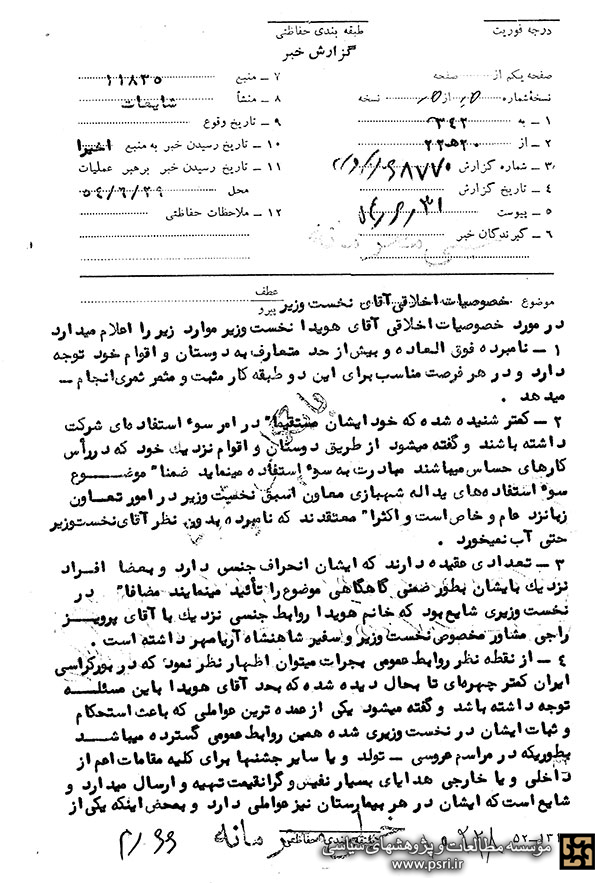 درجه فوریت
طبقه بندی حفاظتی
گزارش خبر
صفحه یکم از صفحه
نسخهٔ شماره از نسخه
۱ ـ به ۳۴۲
۲ ـ از ۲۰ ه ۲۲
۳ ـ شماره گزارش
۴ ـ تاریخ گزارش
۵ ـ پیوست
۶ ـ گیرندگان خبر
۷ ـ منبع ۱۱۸۳۵
۸ ـ منشأ شایعات
۹ ـ تاریخ وقوع
۱۰ ـ تاریخ رسیدن خبر به منبع اخیرا
۱۱ ـ تاریخ رسیدن خبر برهبر عملیات
محل ۵۴/۶/۲۹
۱۲ ـ ملاحظات حفاظتی
موضوع خصوصیات اخلاقی آقای نخست وزیر
عطف
پیرو
در مورد خصوصیات اخلاقی آقای هویدا نخست وزیر موارد زیر را اعلام میدارد
۱ ـ نامبرده فوق العاده و بیش از حد متعارف به دوستان و اقوام خود توجه
دارد و در هر فرصت مناسب برای این دو طبقه کار مثبت و مثمر ثمری انجام ـ
میدهد .
۲ ـ کمتر شنیده شده که خود ایشان مستقیما" در امر سوء استفاده ای شرکت
داشته باشند و گفته میشود از طریق دوستان و اقوام نزدیک خود که در رأس
کارهای حساس میباشند مبادرت به سوء استفاده مینماید ضمنا" موضوع
سوء استفاده های یداله شهبازی معاون اسبق نخست وزیر در امور تعاون
زبانزد عام و خاص است و اکثرا" معتقدند که نامبرده بدون نظر آقای نخست وزیر
حتی آب نمیخورد .
۳ ـ تعدادی عقیده دارند که ایشان انحراف جنسی دارد و بعضا افراد
نزدیک بایشان بطور ضمنی گاهگاهی موضوع را تأئید مینمایند مضافا" در
نخست وزیری شایع بود که خانم هویدا روابط جنسی نزدیک با آقای پرویز
راجی مشاور مخصوص نخست وزیر و سفیر شاهنشاه آریامهر داشته است .
۴ ـ از نقطه نظر روابط عمومی بجرات میتوان اظهار نظر نمود که در بورکراسی
ایران کمتر چهره ای تا بحال دیده شده که بحد آقای هویدا باین مسئله
توجه داشته باشد و گفته میشود یکی از عمده ترین عواملی که باعث استحکام
و ثبات ایشان در نخست وزیری شده همین روابط عمومی گسترده میباشد
بطوریکه در مراسم عروسی ـ تولد و یا سایر جشنها برای کلیه مقامات اعم از
داخلی و یا خارجی هدایای بسیار نفیس و گرانقیمت تهیه و ارسال میدارد و
شایع است که ایشان در هر بیمارستان نیز عواملی دارد و بمحض اینکه یکی از
طبقه بندی حفاظتی
مؤسسه مطالعات و پژوهشهای سیاسی
www.psri.ir